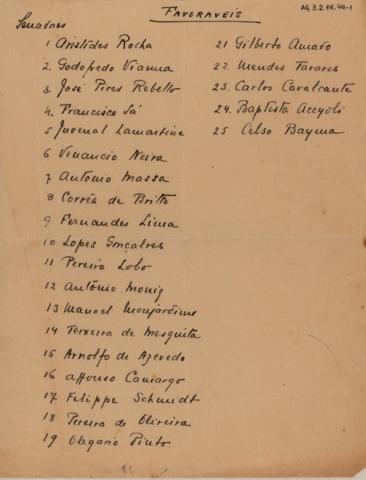 FAVORAVEIS
AG 3.2.14.44-1
Senadores
1 Aristides Rocha
2. Godofredo Vianna
3 José Pires Rebello
4. Francisco Sá
5 Juvenal Lamartine
6 Venancio Neiva
7 Antonio Massa
8 Corrêa de Britto
9 Fernandes Lima
10 Lopes Gonçalves
11 Pereira Lobo
12 Antônio Moniz
13 Manoel Monjardim
14 Teixeira de Mesquita
15 Arnolfo de Azevedo
16 Affonso Camargo
17 Felippe Schmidt
18 Pereira de Oliveira
19 Olegario Pinto
21 Gilberto Amado
22 Mendes Tavares
23. Carlos Cavalcante
24. Baptista Accyoli
25 Celso Bayma